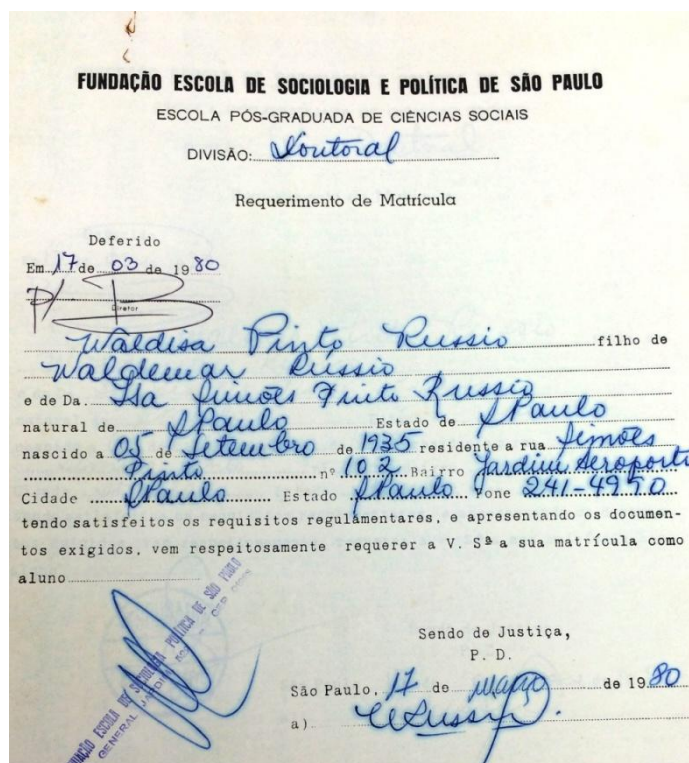 FUNDAÇÃO ESCOLA DE SOCIOLOGIA E POLÍTICA DE SÃO PAULO
ESCOLA PÓS-GRADUADA DE CIÊNCIAS SOCIAIS
DIVISÃO: Doutoral
Requerimento de Matrícula
Deferido
Em 17 de 03 de 1980
P/
Diretor
Waldisa Pinto Russio filho de
Waldemar Russio
e de Da. Isa Simões Pinto Russio
natural de SPaulo Estado de SPaulo
nascido a 05 de Setembro de 1935 residente a rua Simões
Pinto nº 102 Bairro Jardim Aeroporto
Cidade SPaulo Estado SPaulo Fone 241-4990
tendo satisfeitos os requisitos regulamentares, e apresentando os documen-
tos exigidos, vem respeitosamente requerer a V. Sª a sua matrícula como
aluno
FUNDAÇÃO ESCOLA DE SOCIOLOGIA E POLÍTICA DE SÃO PAULO
GENERAL JARDIM
Sendo de Justiça,
P. D.
São Paulo, 17 de março de 1980
a)